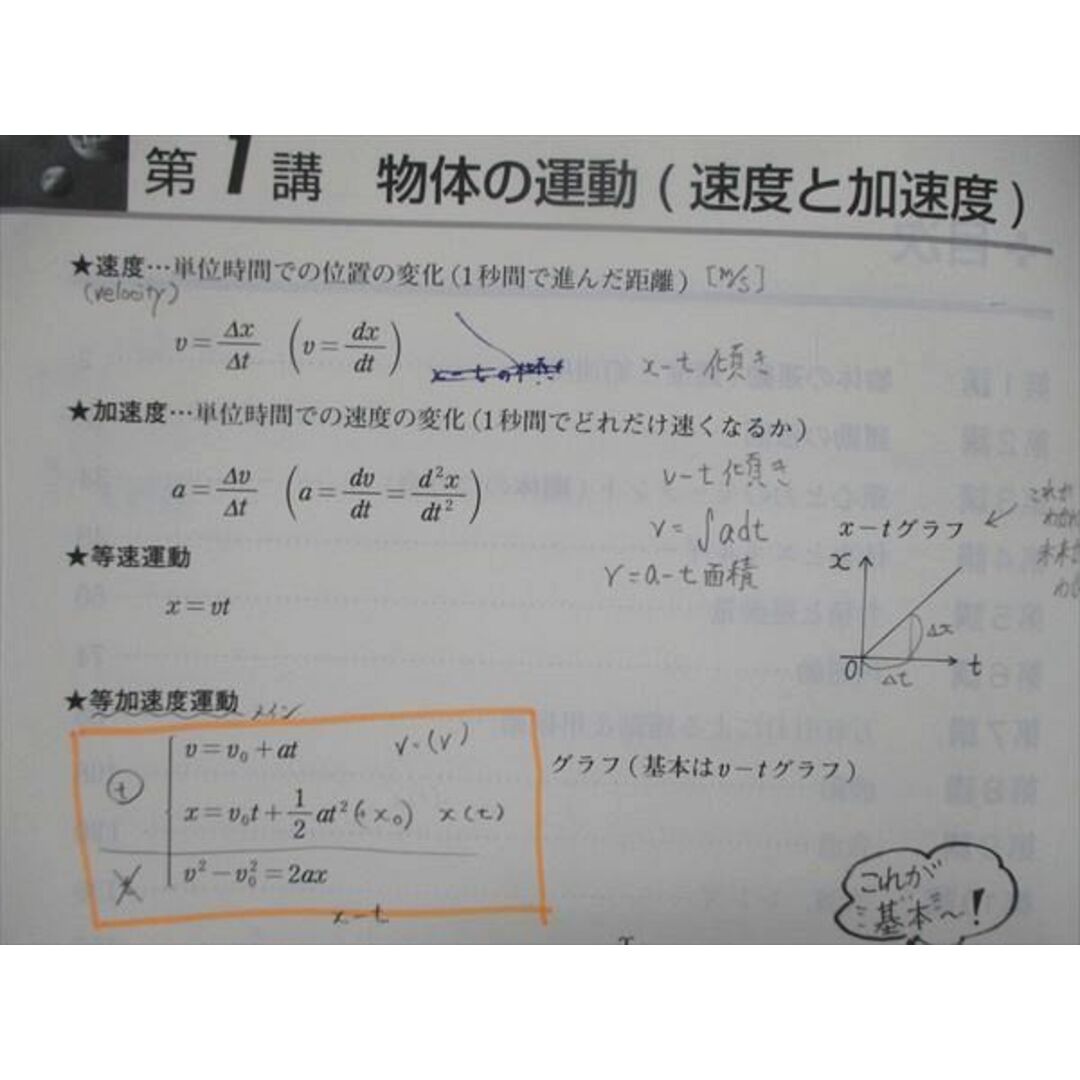 第1講 物体の運動(速度と加速度)
★速度…単位時間での位置の変化(1秒間で進んだ距離) [m/s]
(velocity)
v=Δx/Δt (v=dx/dt)
x-t 傾き
★加速度…単位時間での速度の変化(1秒間でどれだけ速くなるか)
v-t 傾き
a=Δv/Δt (a=dv/dt=d²x/dt²)
v=∫adt
v=a-t面積
★等速運動
x=vt
x-tグラフ
x
Δx
0
Δt
t
★等加速度運動 メイン
v=v₀+at v=(v)
t
x=v₀t+1/2at²(+x₀) x(t)
v²-v₀²=2ax
x-t
グラフ(基本はv-tグラフ)
これが
基本~!
x